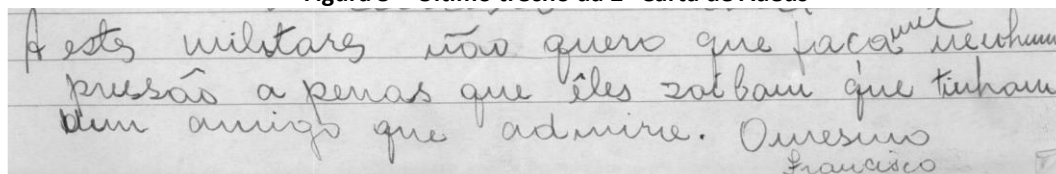 Figura 3 – Último trecho da 2ª Carta de Adeus
A estes militares não quero que faca nenhum
pressão a penas que êles saibam que tinham
um amigo que admire. Omesmo
Francisco